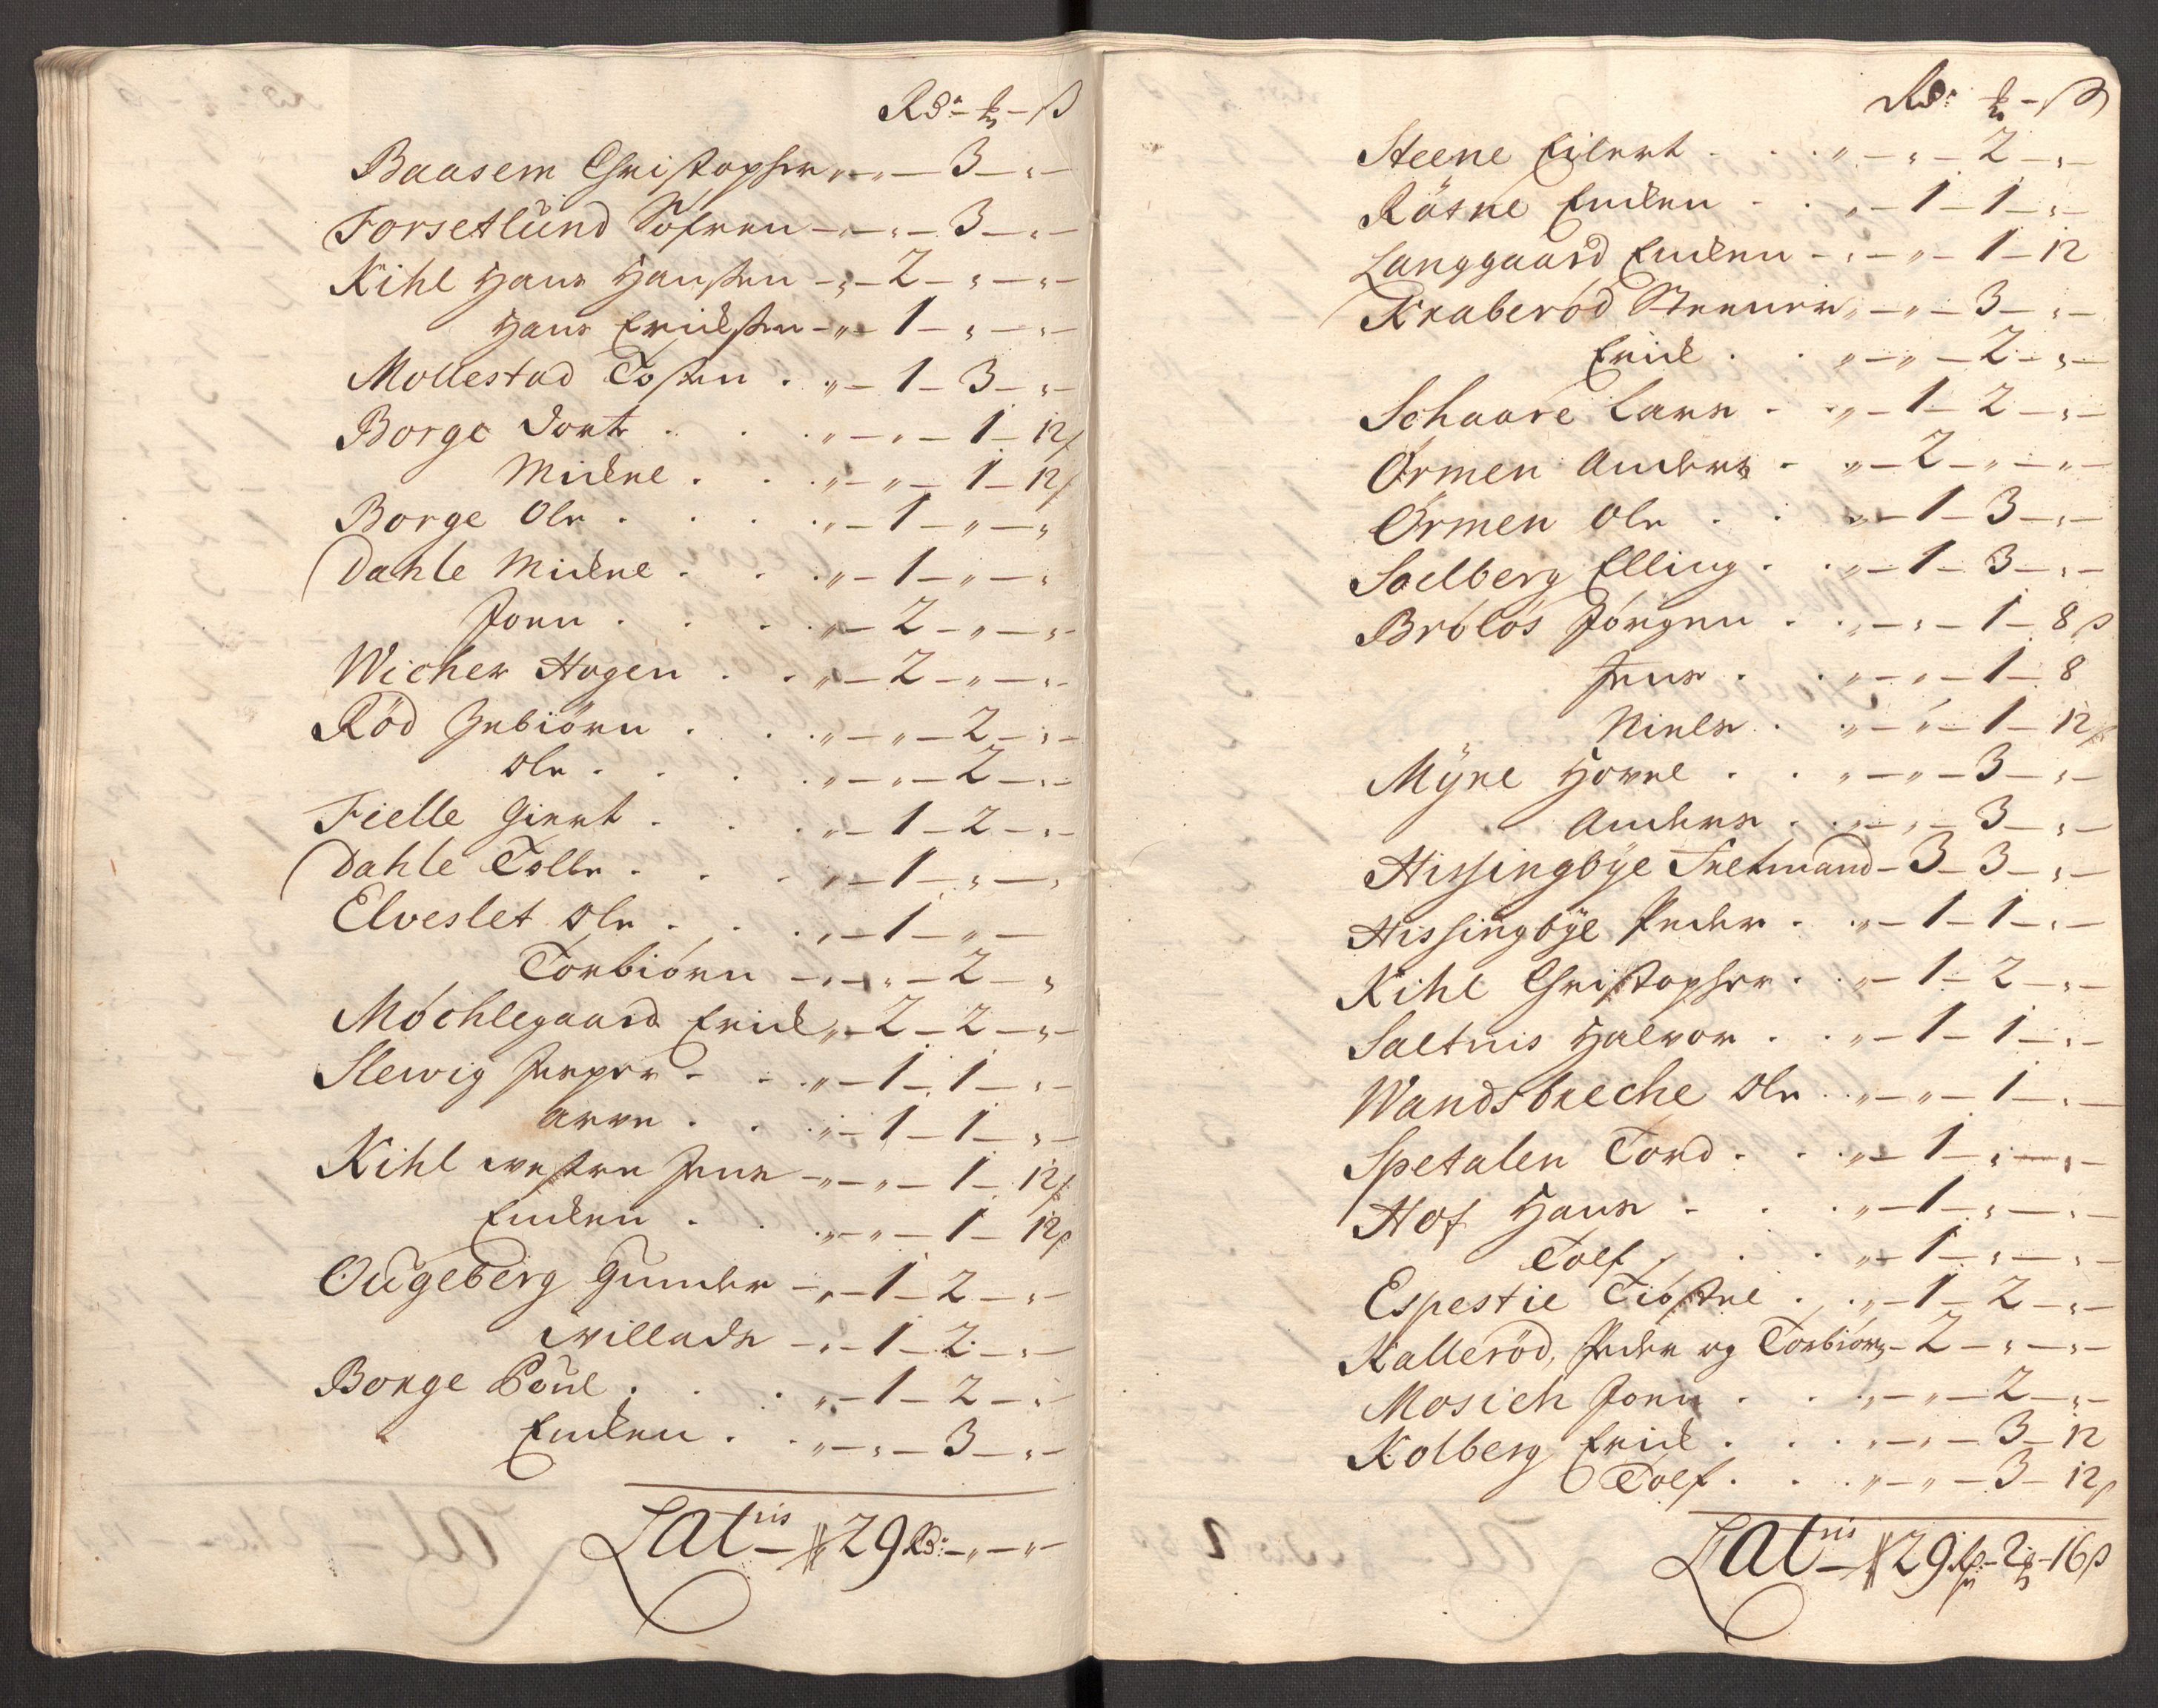 Rdr - ₰ - ß
Baasem Christopher „ - „ - 3 - „ -
Forsetlünd Söfren - „ - „ - 3 - „ -
Kihl Hans Hansen - „ - 2 - „ - „ -
Hans Ericksen - „ - 1 - „ - „ -
Mollestad Tosten . „ - 1 - 3 - „ -
Borge Dorte . . . „ - „ - 1 - 12ß
Mickel . . „ - „ - 1 - 12ß
Borge Ole . . . . „ - 1 - „ - „
Dahle Mickel . . . „ - 1 - „ - „
Joen . . . „ - 2 - „ - „ -
Wicher Hogen . . „ - 2 - „ - „ -
Röd Gebiörn . . . „ - „ - 2 - „ -
Ole . . . . „ - „ - 2 - „ -
Fielle Giert . . . „ - 1 - 2 - „ -
Dahle Tolle . . . „ - 1 - „ - „
Elveslet Ole . . . „ - 1 - „ -
Torbiörn - „ - „ - 2 - „
Möchlegaard Erick „ - 2 - 2 - „ -
Slevig Jesper . . . „ - 1 - 1 - „ -
Arve . . . „ - 1 - 1 - „ -
Kihl westre Jens - „ - „ - 1 - 12ß
Encken . . „ - „ - 1 - 12ß
Oügeberg Gunder - „ - 1 - 2 - „ -
Willads - „ - 1 - 2 - „ -
Borge Poül . . . „ - 1 - 2 - „ -
Encken . . „ - „ - 3 - „ -
Latris - 29 Rdr - „ - „ -
Rdr ₰ - ß
Steene Eilert . . . „ - „ - 2 - „ -
Rösne Encken . . „ - 1 - 1 - „ -
Langgaard Encken - „ - „ - 1 - 12
Kraberöd Steener „ - „ - 3 - „ -
Erick . . „ - „ - 2 - „ -
Schaare Lars . . „ - 1 - 2 - „ -
Örmen Anders . „ - 2 - „ - „ -
Örmen Ole . . „ - 1 - 3 - „ -
Soelberg Elling . . „ - 1 - 3 - „ -
Brölös Jörgen . . „ - „ - 1 - 8ß
Jens . . „ - „ - 1 - 8
Niels . „ - „ - 1 - 12ß
Myre Hovel . . „ - „ - 3 - „ -
Anders . . „ - „ - 3 - „ -
Hissingbye Feltmand - 3 - 3 - „ -
Hissingbye Peder . „ - 1 - 1 - „ -
Kihl Christopher . . „ - 1 - 2 - „ -
Saltnis Halvor . . „ - 1 - 1 - „ -
Wandsbeche Ole . . „ - „ - 1 - „ -
Spetalen Tord . . „ - 1 - „ - „ -
Hof Hans . . . „ - 1 - „ - „ -
Tolf . . . „ - 1 - „ - „ -
Espestie Tiöstel . . „ - 1 - 2 - „ -
Kalleröd, Peder og Torbiörn - 2 - „ - „ -
Mosich Joen . . „ - „ - 2 - „ -
Kolberg Erick . . . „ - „ - 3 - 12
Tolf . . . „ - „ - 3 - 12ß
Latris - 29 Rdr - 2 ₰ - 16ß